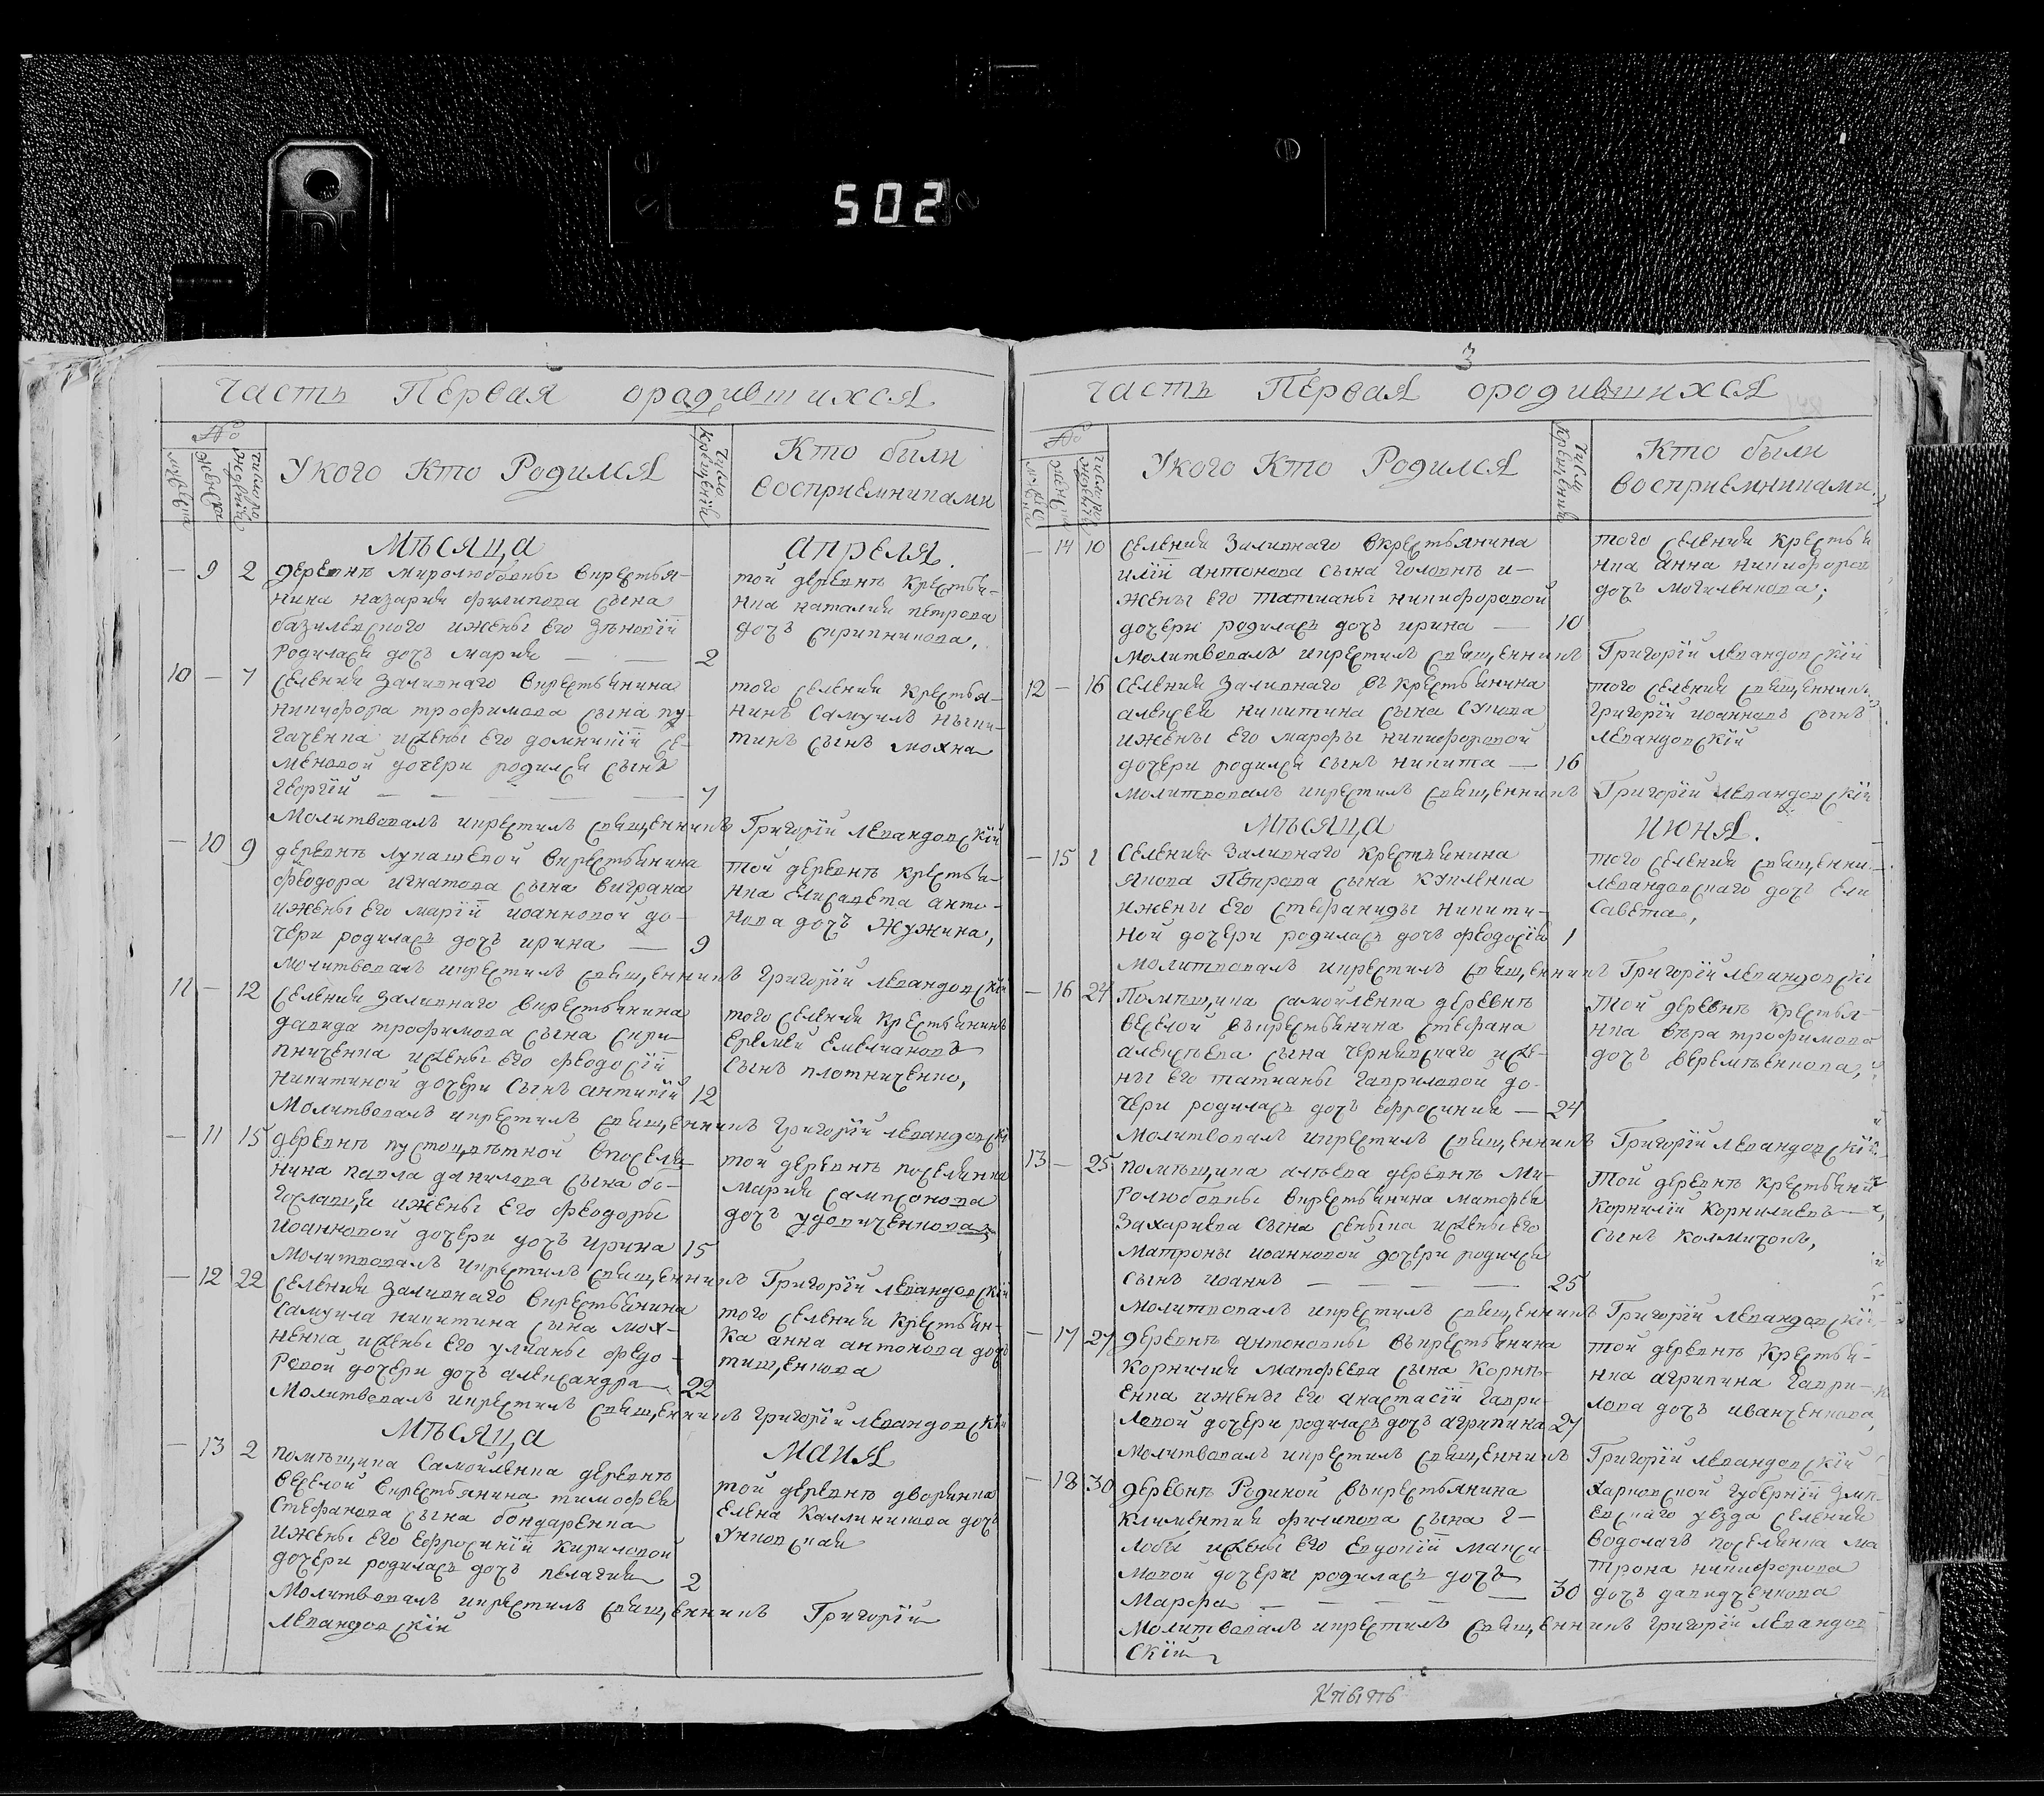 502
часть Первая ородившихся
№
мужеска
женска
число рождения
Укого Кто Родился
число крещения
Кто были
восприемниками
Мѣсяца Апреля.
— 9 2 деревнѣ миролюбовпы вкрестья-
нина назария филипова сына
базилевского ижены его зѣновіи
родилася дочъ мария — — 2
той деревнѣ крестья-
нка наталия петрова
дочъ скрипникова,
10 — 7 селения заливнаго вкрестьянина
никифора трофимова сына пу-
гаченка ижены его домникіи се-
меновой дочери родился сынъ
георгій — — — — 7
того селения крестья-
нинъ самуилъ ники-
тинъ сынъ мохна
Молитвовалъ икрестилъ священникъ Григорій Левандовскій
— 10 9 деревнѣ лукашевой вкрестьянина
феодора игнатова сына виграна
ижены его маріи иоанновой до-
чери родилась дочъ ирина — 9
той деревнѣ крестья-
нка елисавета анто-
нова дочъ жужина,
молитвовалъ икрестилъ священникъ григорій левандовскій
11 — 12 селения заливнаго вкрестьянина
давида трофимова сына скри-
пниченка ижены его феодосіи
никитиной дочери сынъ антипій 12
того селения крестьянинъ
еремей емелиановъ
сынъ плотниченко,
Молитвовалъ икрестилъ священникъ григорій левандовскі
— 11 15 деревнѣ пустоцвѣтной впоселя-
нина павла данилова сына бо-
гославця ижены его феодоры
иоанновой дочери дочъ ирина 15
той деревнѣ поселянка
мария сампсонова
дочъ удовиченкова,
Молитвовалъ икрестилъ священникъ Григорій левандовскій
— 12 22 селения заливнаго вкрестьянина
самуила никитина сына мох-
ненка ижены его улианы федо-
ровой дочери дочъ александра 22
того селения крестьян-
ка анна антонова дочъ
тищенкова
Молитвовалъ икрестилъ священникъ григорій левандовскій
Мѣсяца Маия
— 13 2 помѣщика самойленка деревнѣ
веселой вкрестьянина тимофея
стефанова сына бондаренка
ижены его ефросиніи кириловой
дочери родилась дочъ пелагия 2
той деревнѣ дворянка
елена каллиникова дочъ
Унковская
Молитвовалъ икрестилъ священникъ Григорій
левандовскій
3
часть Первая ородившихся
№
мужеска
женска
число рождения
Укого Кто Родился
числа крещения
Кто были
восприемниками
— 14 10 селения заливнаго вкрестьянина
илїи антонова сына головнѣ и-
жены его татианы никифоровой
дочери родилась дочъ ирина — 10
того селения крестья
нка анна никифоров
дочъ могиленкова;
Молитвовалъ икрестилъ священникъ Григорій левандовскій
12 — 16 селения заливнаго въкрестьянина
алексея никитина сына сукова
ижены его марфы никифоровой
дочери родился сынъ никита — 16
того селения священник
григорій иоанновъ сынъ
левандовскій
молитвовалъ икрестилъ священникъ Григорій левандовскій
Мѣсяца Июня.
— 15 1 селения заливнаго крестьянина
якова петрова сына куленка
ижены его стефаниды никити-
ной дочери родилась дочъ феодосїя 1
того селения священни-
левандовскаго дочъ ели
савета,
молитвовалъ икрестилъ священникъ Григорій левандовскі
— 16 24 помѣщика самойленка деревнѣ
веселой въкрестьянина стефана
алексѣева сына чернявскаго иже-
ны его татианы гавриловой до-
чери родилась дочъ ефросиния — 24
той деревнѣ крестья-
нка вѣра трофимова
дочъ веремѣенкова,
Молитвовалъ икрестилъ священникъ Григорій левандовскій
13 — 25 помѣщика алѣева деревнѣ ми-
ролюбовпы вкрестьянина матфея
захариева сына сеныка ижены его
матроны иоанновой дочери родился
сынъ иоаннъ — — — 25
той деревнѣ крестьянин
корнилій корнилиевъ
сынъ колмичокъ,
Молитвовалъ икрестилъ священникъ Григорій левандовскій
— 17 27 деревнѣ антоновпы въкрестьянина
корнилия матфеева сына корнѣ-
енка ижены его анастасіи гаври-
ловой дочери родилась дочъ агрипина 27
той деревнѣ крестья-
нка агрипина гаври-
лова дочъ иванченкова,
Молитвовалъ икрестилъ священникъ Григорій левандовскій
— 18 30 деревнѣ Родиной въкрестьянина
климентия филипова сына г-
лобы ижены его евдокіи макси-
мовой дочери родилась дочъ
марфа — — — — 30
харковской губерніи зми-
евскаго уезда селения
водолагъ поселянка ма
трона никифорова
дочъ давидченкова
Молитвовалъ икрестилъ священникъ григорій левандов
скій